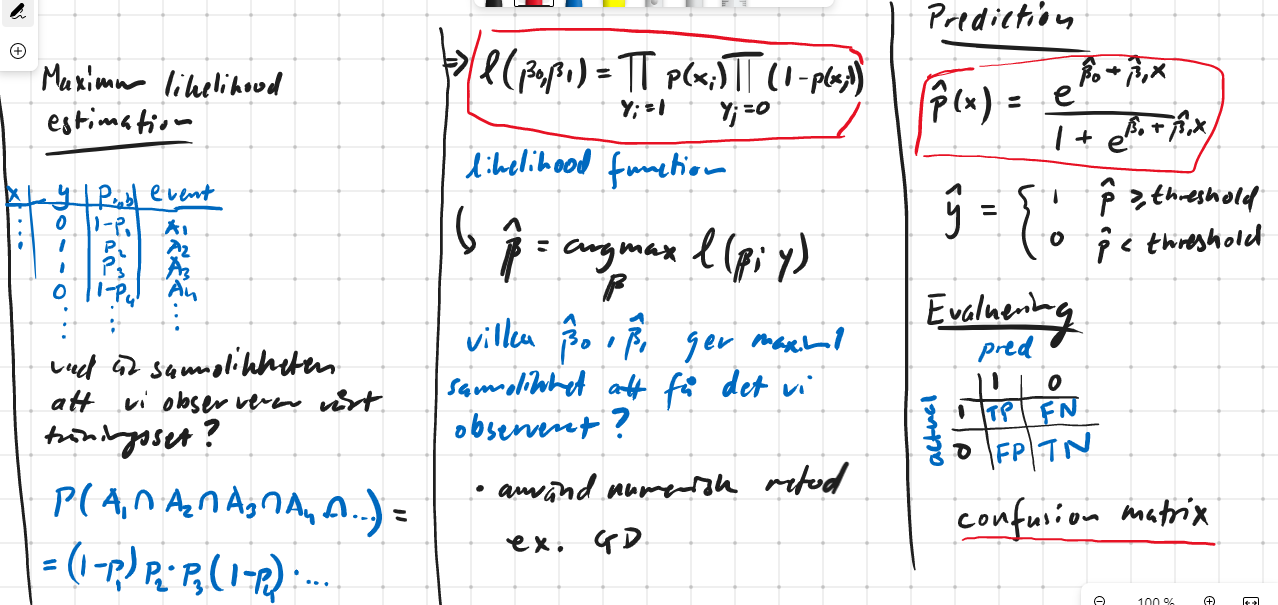 Maximum likelihood
estimation
x y prob event
⋮ 0 1-p₁ A₁
1 p₂ A₂
1 p₃ A₃
0 1-p₄ A₄
⋮ ⋮ ⋮
vad är sannolikheten
att vi observerar vårt
träningsset?
P(A₁∩A₂∩A₃∩A₄∩...) =
= (1-p₁)p₂·p₃(1-p₄)·...
⇒ l(β₀,β₁) = ∏ p(xᵢ) ∏ (1-p(xⱼ))
yᵢ=1 yⱼ=0
likelihood function
↳ β̂ = argmax l(β; y)
β
vilka β̂₀, β̂₁ ger maximal
sannolikhet att få det vi
observerat?
• använd numerisk metod
ex. GD
Prediction
p̂(x) = e^(β̂₀ + β̂₁x) / (1 + e^(β̂₀ + β̂₁x))
ŷ = { 1 p̂ ≥ threshold
0 p̂ < threshold
Evaluering
pred
1 0
actual
1 TP FN
0 FP TN
confusion matrix
100 %